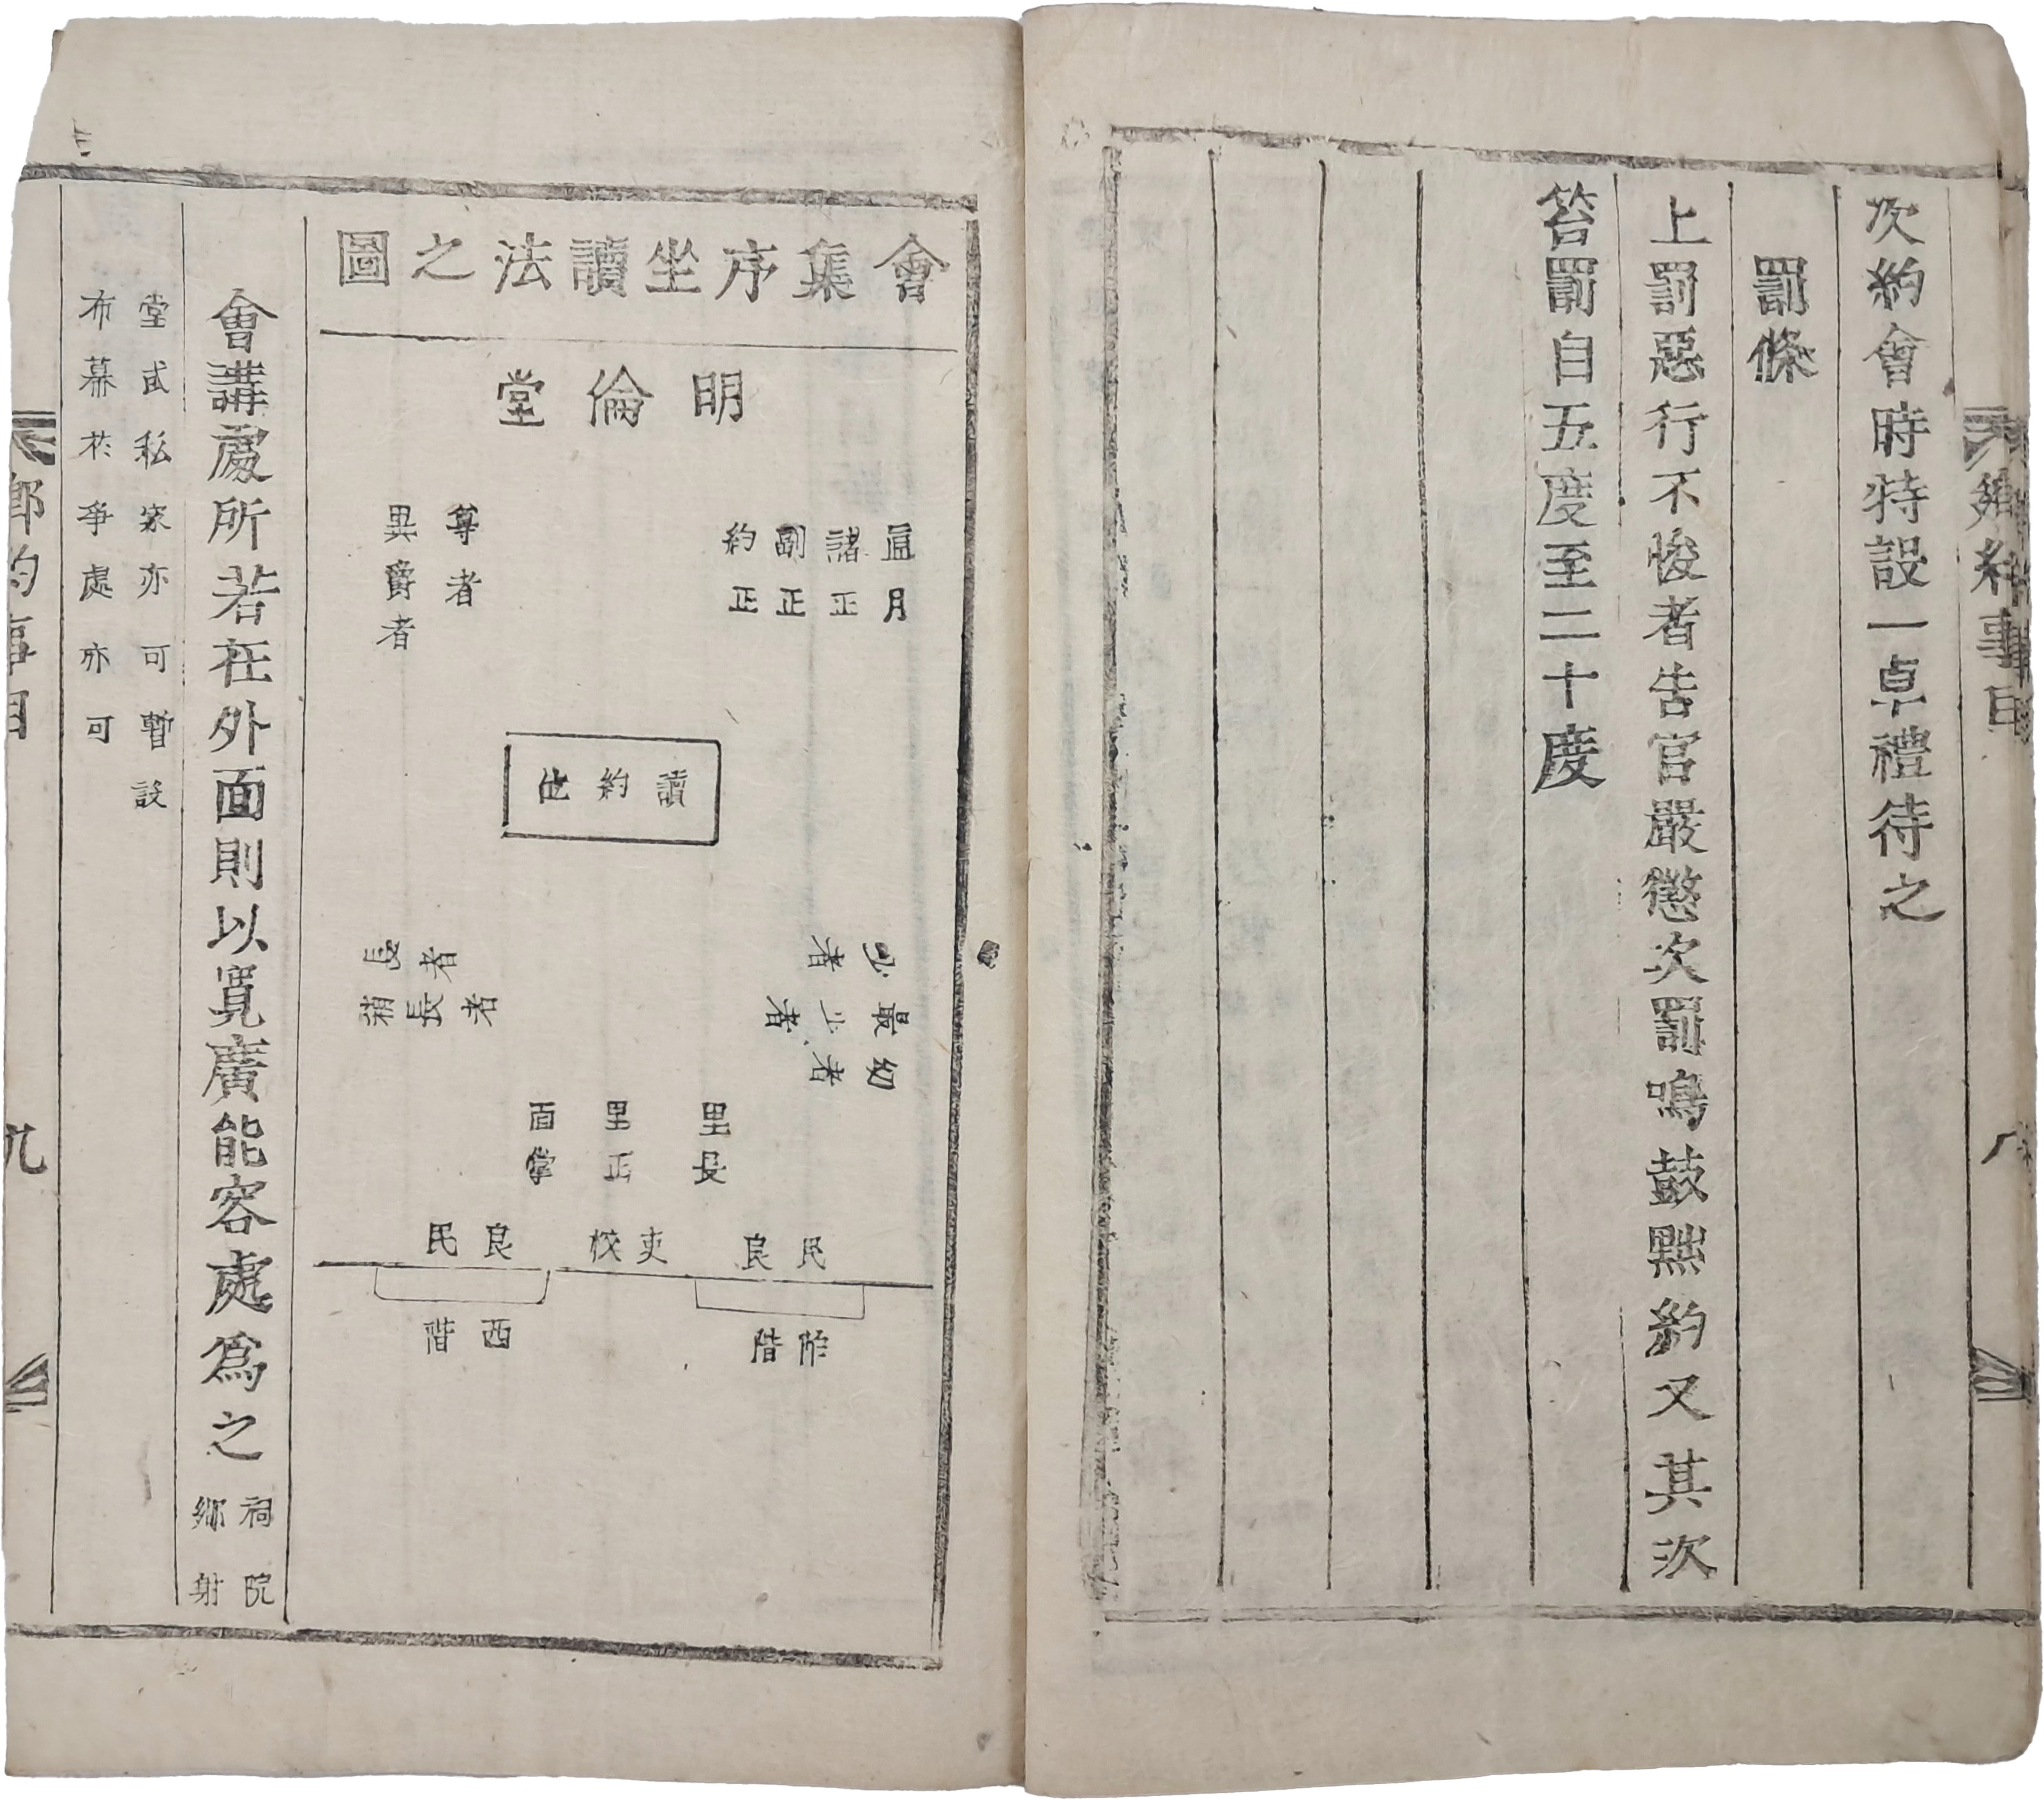 鄕約事目
八
次約會時特設一卓禮待之
罰條
上罰惡行不悛者告官嚴懲次罰鳴鼓黜約又其次
笞罰自五度至二十度
會集序坐讀法之圖
明倫堂
直月
諸正
副正
約正
尊者
異爵者
讀約位
少者
最少者
幼者
長者
稍長者
里長
里正
面掌
民良
吏校
良民
阼階
西階
會講處所若在外面則以寬廣能容處爲之祠院
鄕射
堂或私家亦可暫設
布幕於爭處亦可
鄕約事目
九